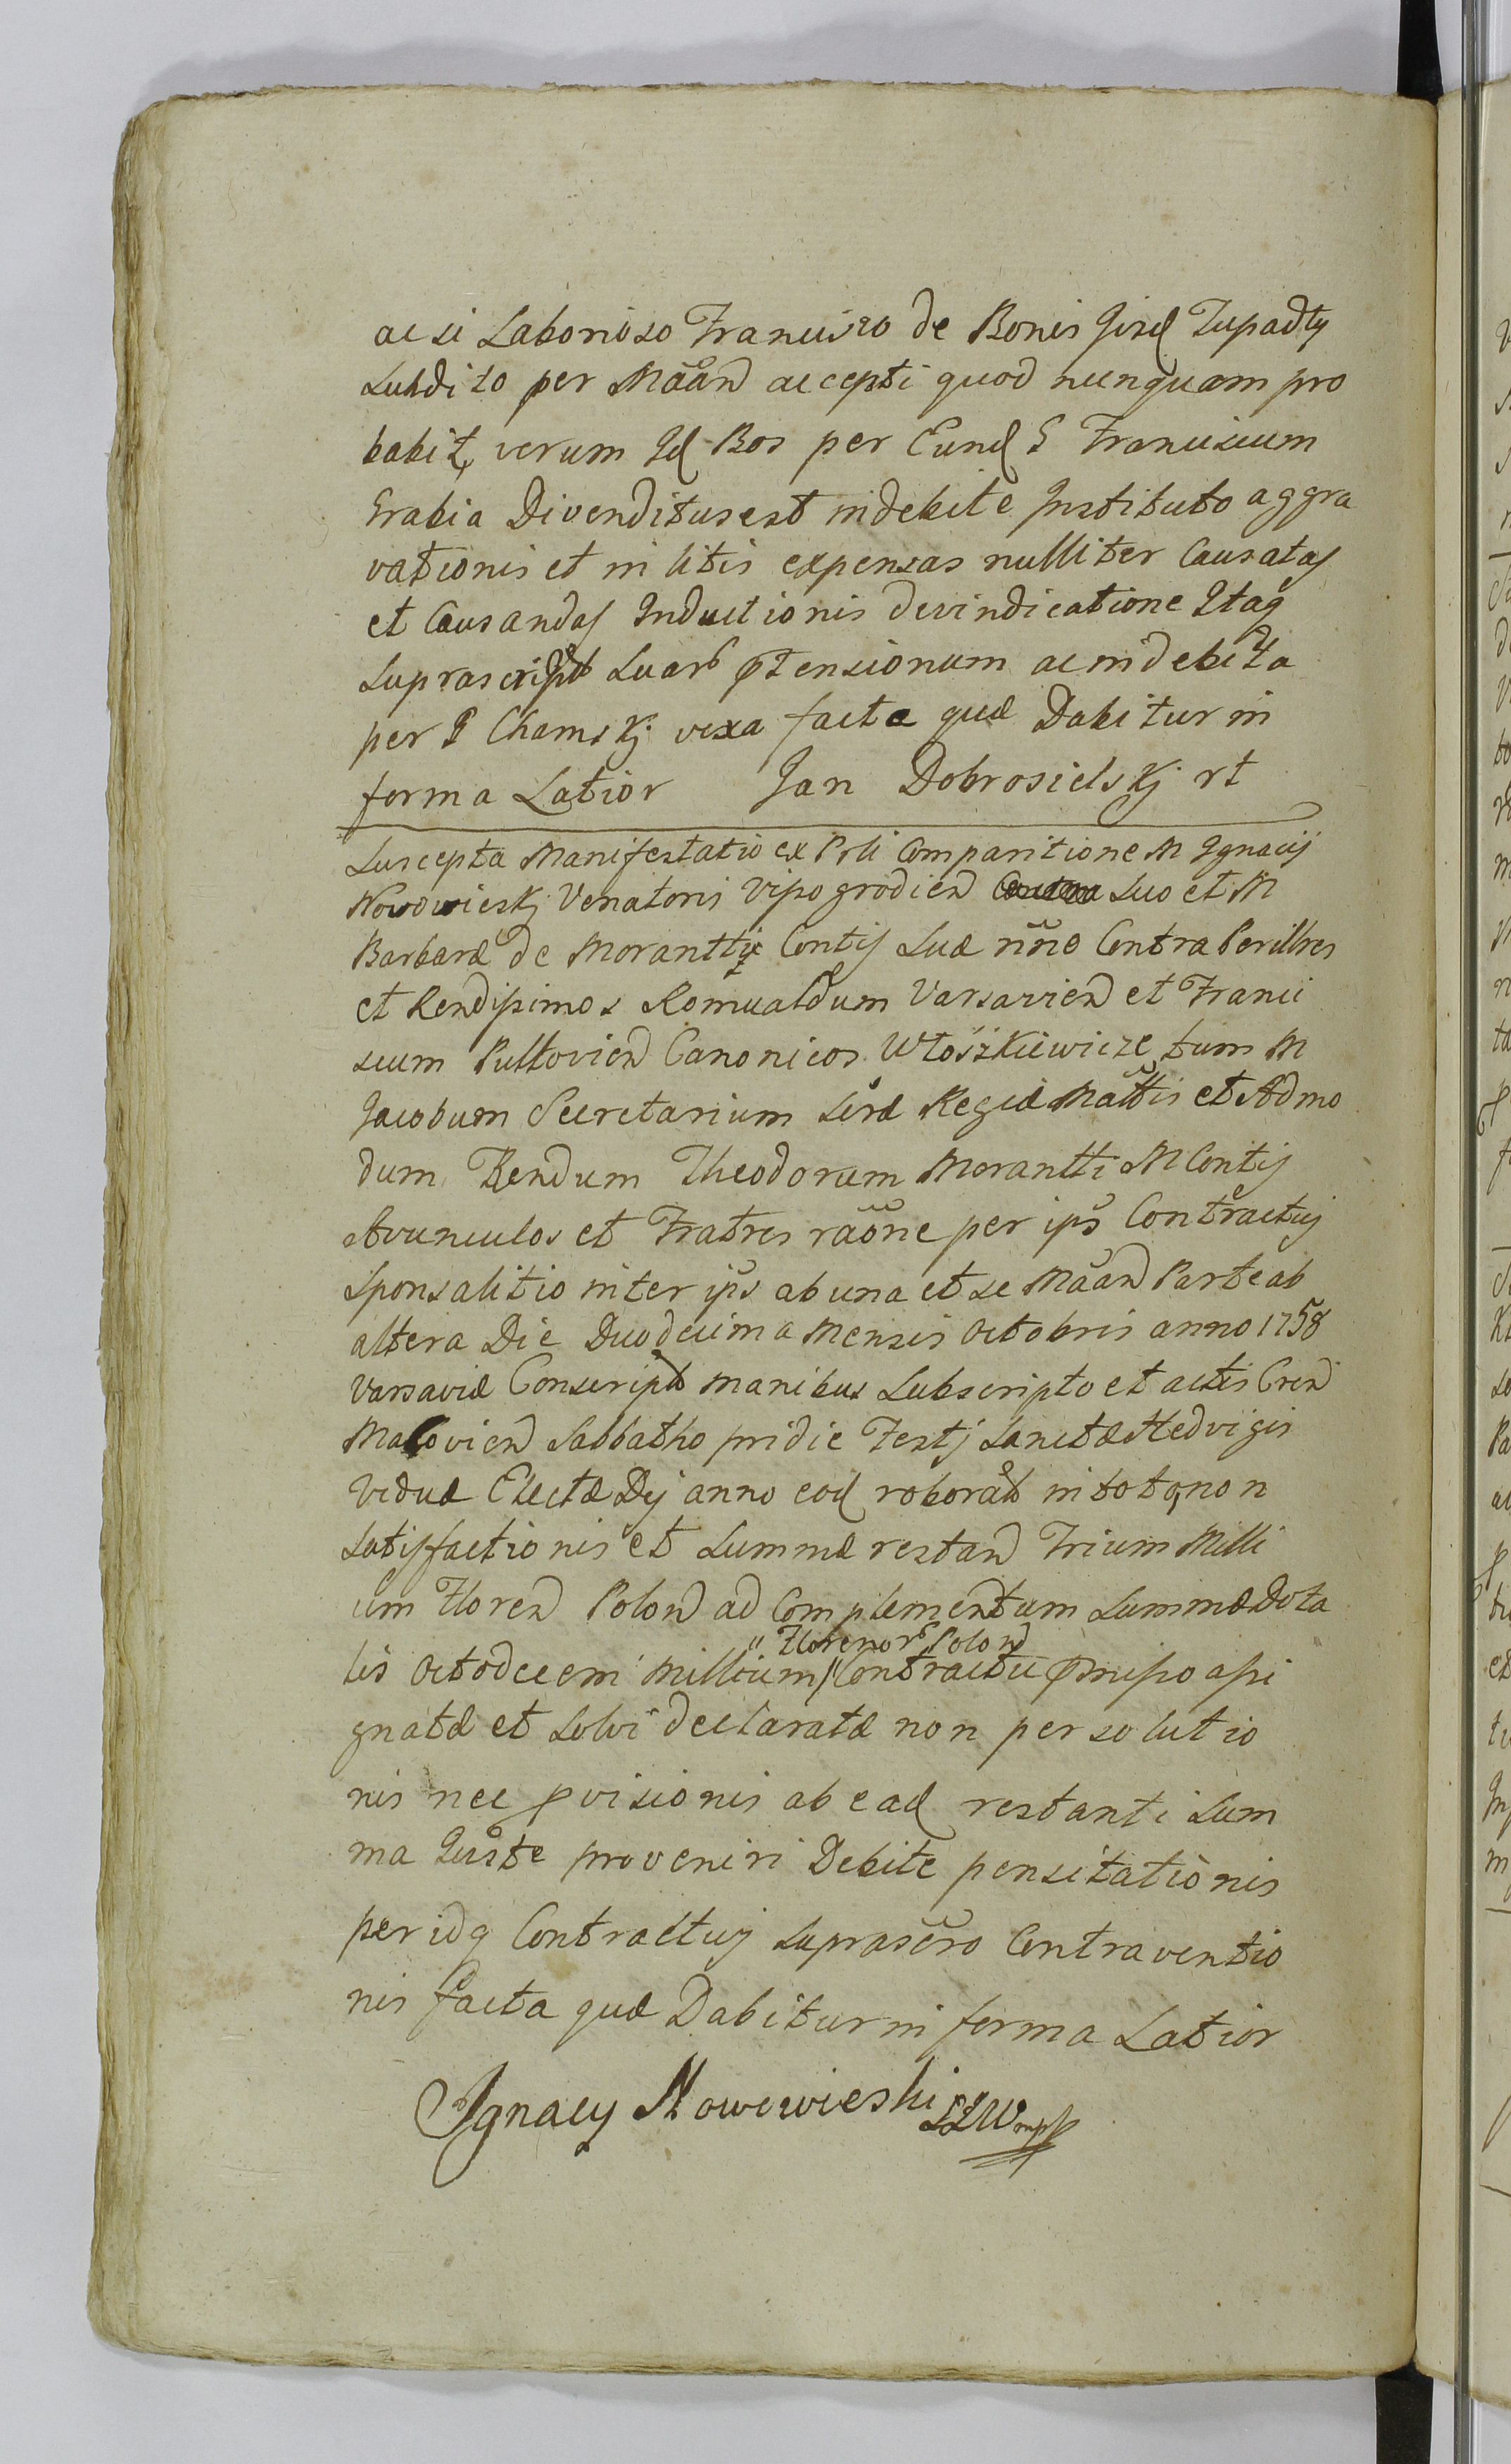 acsi Laborioso Francisco de Bonis Ijsd Tupadły
Subdito per Mãan accepti quod nunquam pro
babit, verum Id Bos per Eund S Franciscum
Grabia Divenditus est indebite Instituto aggra
vationis et in litis expensas nulliter Causatas
et Causandas Inductionis devindicatione Itaq
Suprascript Suar ptensionum ac indebita
per P Chamskj vexa facta quæ Dabitur in
forma Latior Jan Dobrosielskj rt
Suscepta Manifestatio ex Prli Comparitione M Ignacij
Nowowieskj Venatoris Visogrodien Suo et M
Barbaræ de Moranttis Contis Suæ nñe Contra Perillres
et Rendissimos Romualdum Varsavien et Franci
scum Pultovien Canonicos Włoszkiewicze, tum M
Jacobum Secretarium Seræ Regiæ Mattis et Admo
dum Rendum Theodorum Morantti M Contis
Avunculos et Fratres rãone per ips Contractuj
Sponsalitio inter ips ab una et se Mãan Parte ab
altera Die Duodecima Mensis Octobris anno 1758
Varsaviæ Conscript manibus Subscripto et actis Cren
Macovien Sabbatho pridie Festj Sanctæ Hedvigis
Viduæ Electæ Dej anno eod roborat in toto, non
Satisfactionis et Summæ restan Trium Milli
um Floren Polon ad Complementum Summæ Dota
lis Octodecem Millium, " Florenor Polon " Contractu pmisso assi
gnatæ et Solvi declaratæ non persolutio
nis nec pvisionis ab ead restanti Sum
ma Juste proveniri Debite pensitationis
per idq Contractuj Suprascro Contraventio
nis facta quæ Dabitur in forma Latior
Ignacy Nowowieski ŁZW mp